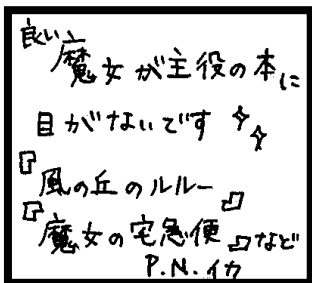 良い魔女が主役の本に
目がないです
『風の丘のルルー』
『魔女の宅急便』など
P.N.イカ